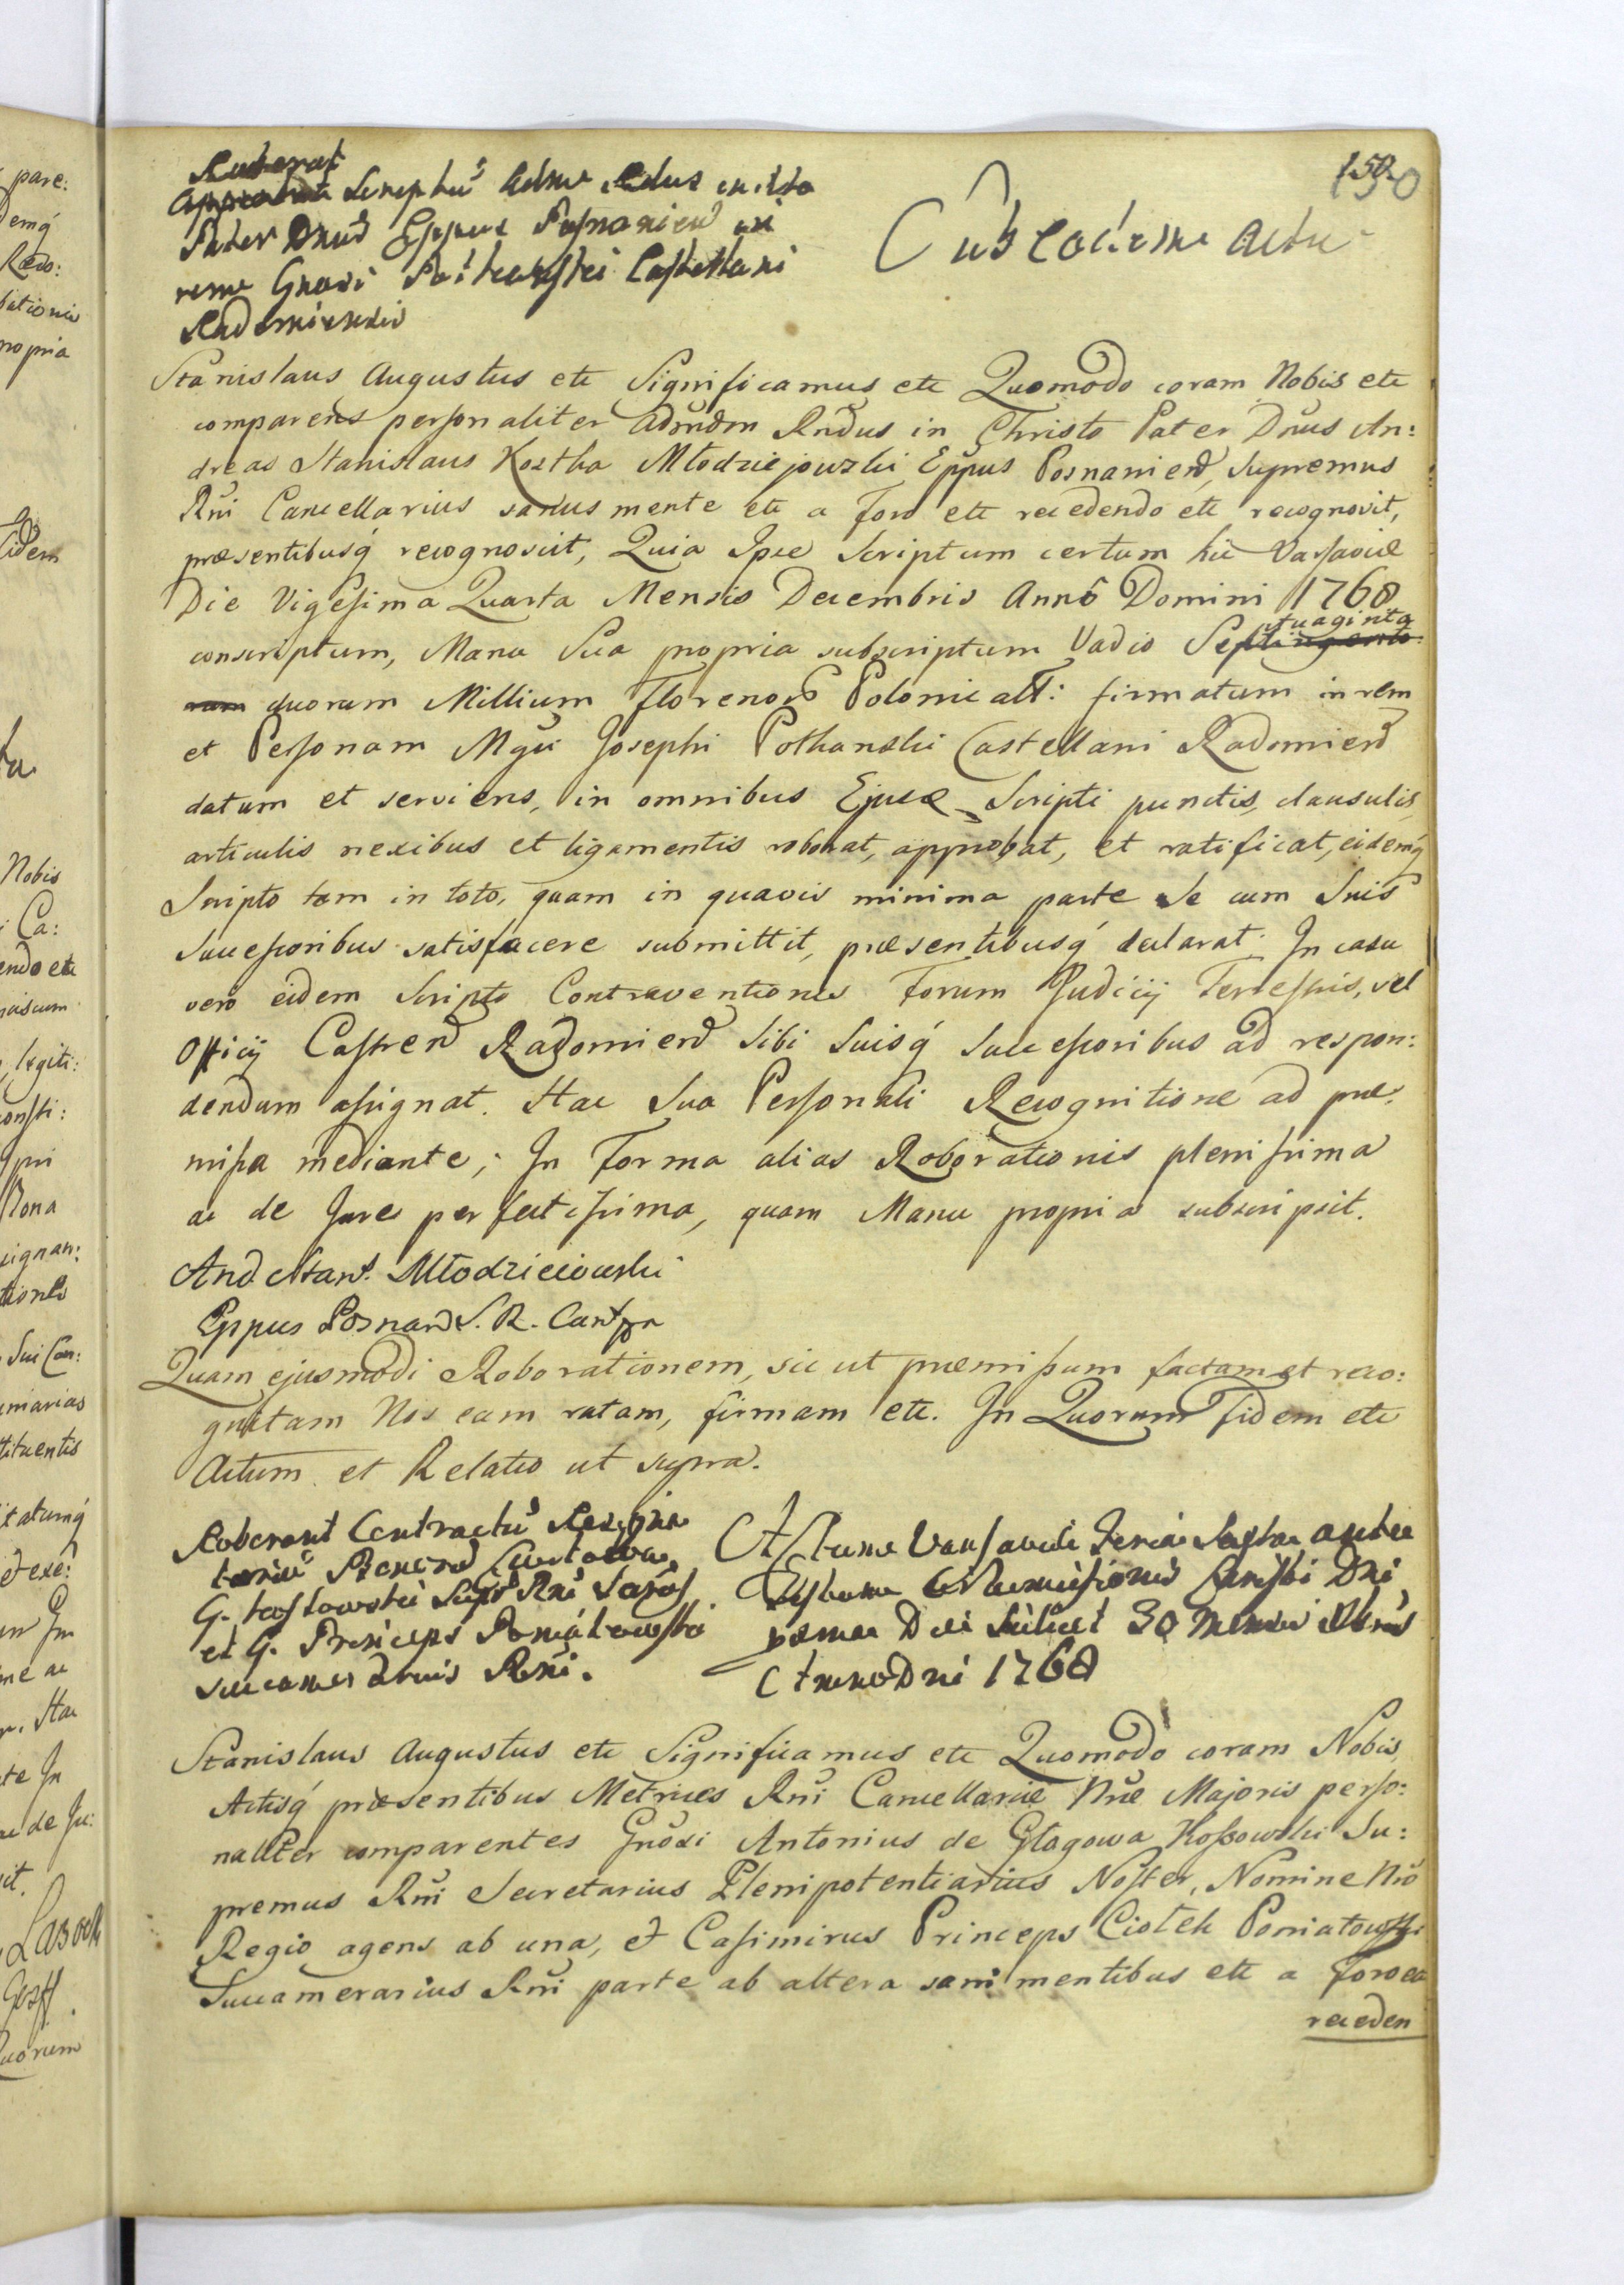 150
Roborat
Scriptũ Adme Rdus in Xto
Pater Dnus Eppus Posnanien̄ in
rem Gnosi Potkański Castellani
Radomiensis
Sub eodem Actu
Stanislaus Augustus etc Significamus etc Quomodo coram Nobis etc
comparens personaliter Admdm Rndus in Christo Pater Dnus An:
dreas Stanislaus Kostka Młodziejowski Eppus Posnanien̄, Supremus
Rni Cancellarius sanus mente etc a foro etc recedendo etc recognovit,
præsentibusq́ recognoscit, Quia Ipse Scriptum certum hic Varsaviæ
Die Vigesima Quarta Mensis Decembris Anno Domini 1768
conscriptum, Manu Sua propria subscriptum Vadio Septuaginta
duorum Millium Florenoꝝ Polonicall: firmatum in rem
et Personam Mgci Josephi Pothanski Castellani Radomien̄
datum et serviens, in omnibus Ejusd Scripti punctis, clausulis,
articulis nexibus et ligamentis roborat, approbat, et ratificat, eidemq́
Scripto tam in toto, quam in quavis minima parte Se cum Suis
Successoribus satisfacere submittit, præsentibusq́ declarat. In casu
vero eidem Scripto Contraventionis Forum Judicij Terrestris, vel
Officij Castren̄ Radomien̄ Sibi Suisq́ Successoribus ad respon:
dendum assignat. Hac Sua Personali Recognitione ad præ:
missa mediante; In Forma alias Roborationis plenissima
ac de Jure perfectissima, quam Manu propria subscripsit.
And. Stan. Młodzieiowski
Eppus Posnan̄ S. R. Canc
Quam ejusmodi Roborationem, sic ut præmissum factam et reco:
gnitam Nos eam ratam, firmam etc. In Quorum Fidem etc
Actum et Relatio ut supra.
Roborant Contractũ Resigna
toriũ Bonorꝝ
G. Kossowski Supr Rni Secrs
et G. Princeps Poniatowski
succamerarius Rni.
Actum Varsaviæ Feria Sexta ante
Festum Circumcisionis Christi Dni
proxima Die Scilicet 30 Mensis Xbris
Anno Dni 1768
Stanislaus Augustus etc Significamus etc Quomodo coram Nobis,
Actisq́ præsentibus Metrices Rni Cancellariæ Nræ Majoris perso:
naliter comparentes Gnosi Antonius de Głogowa Kossowski Su:
premus Rni Secretarius Plenipotentiarius Noster, Nomine Nro
Regio agens ab una, et Casimirus Princeps Ciołek Poniatowski
Succamerarius Rni parte ab altera sani mentibus etc a foro etc
receden